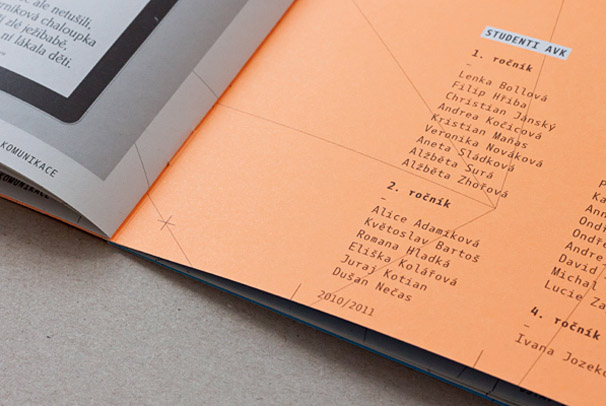 ale netušili,
perníková chaloupka
zlé ježibabě,
ni lákala děti.
KOMUNIKACE
KOMUNIKACE
STUDENTI AVK
1. ročník
–
Lenka Bollová
Filip Hřiba
Christian Jánský
Andrea Kočicová
Kristian Maňas
Veronika Nováková
Aneta Sládková
Alžběta Surá
Alžběta Zhořová
2. ročník
–
Alice Adamíková
Květoslav Bartoš
Romana Hladká
Eliška Kolářová
Juraj Kotian
Dušan Nečas
2010/2011
P
Ka
Ann
Ondř
Ondř
Andre
David
Michal
Lucie Za
4. ročník
–
Ivana Jozek